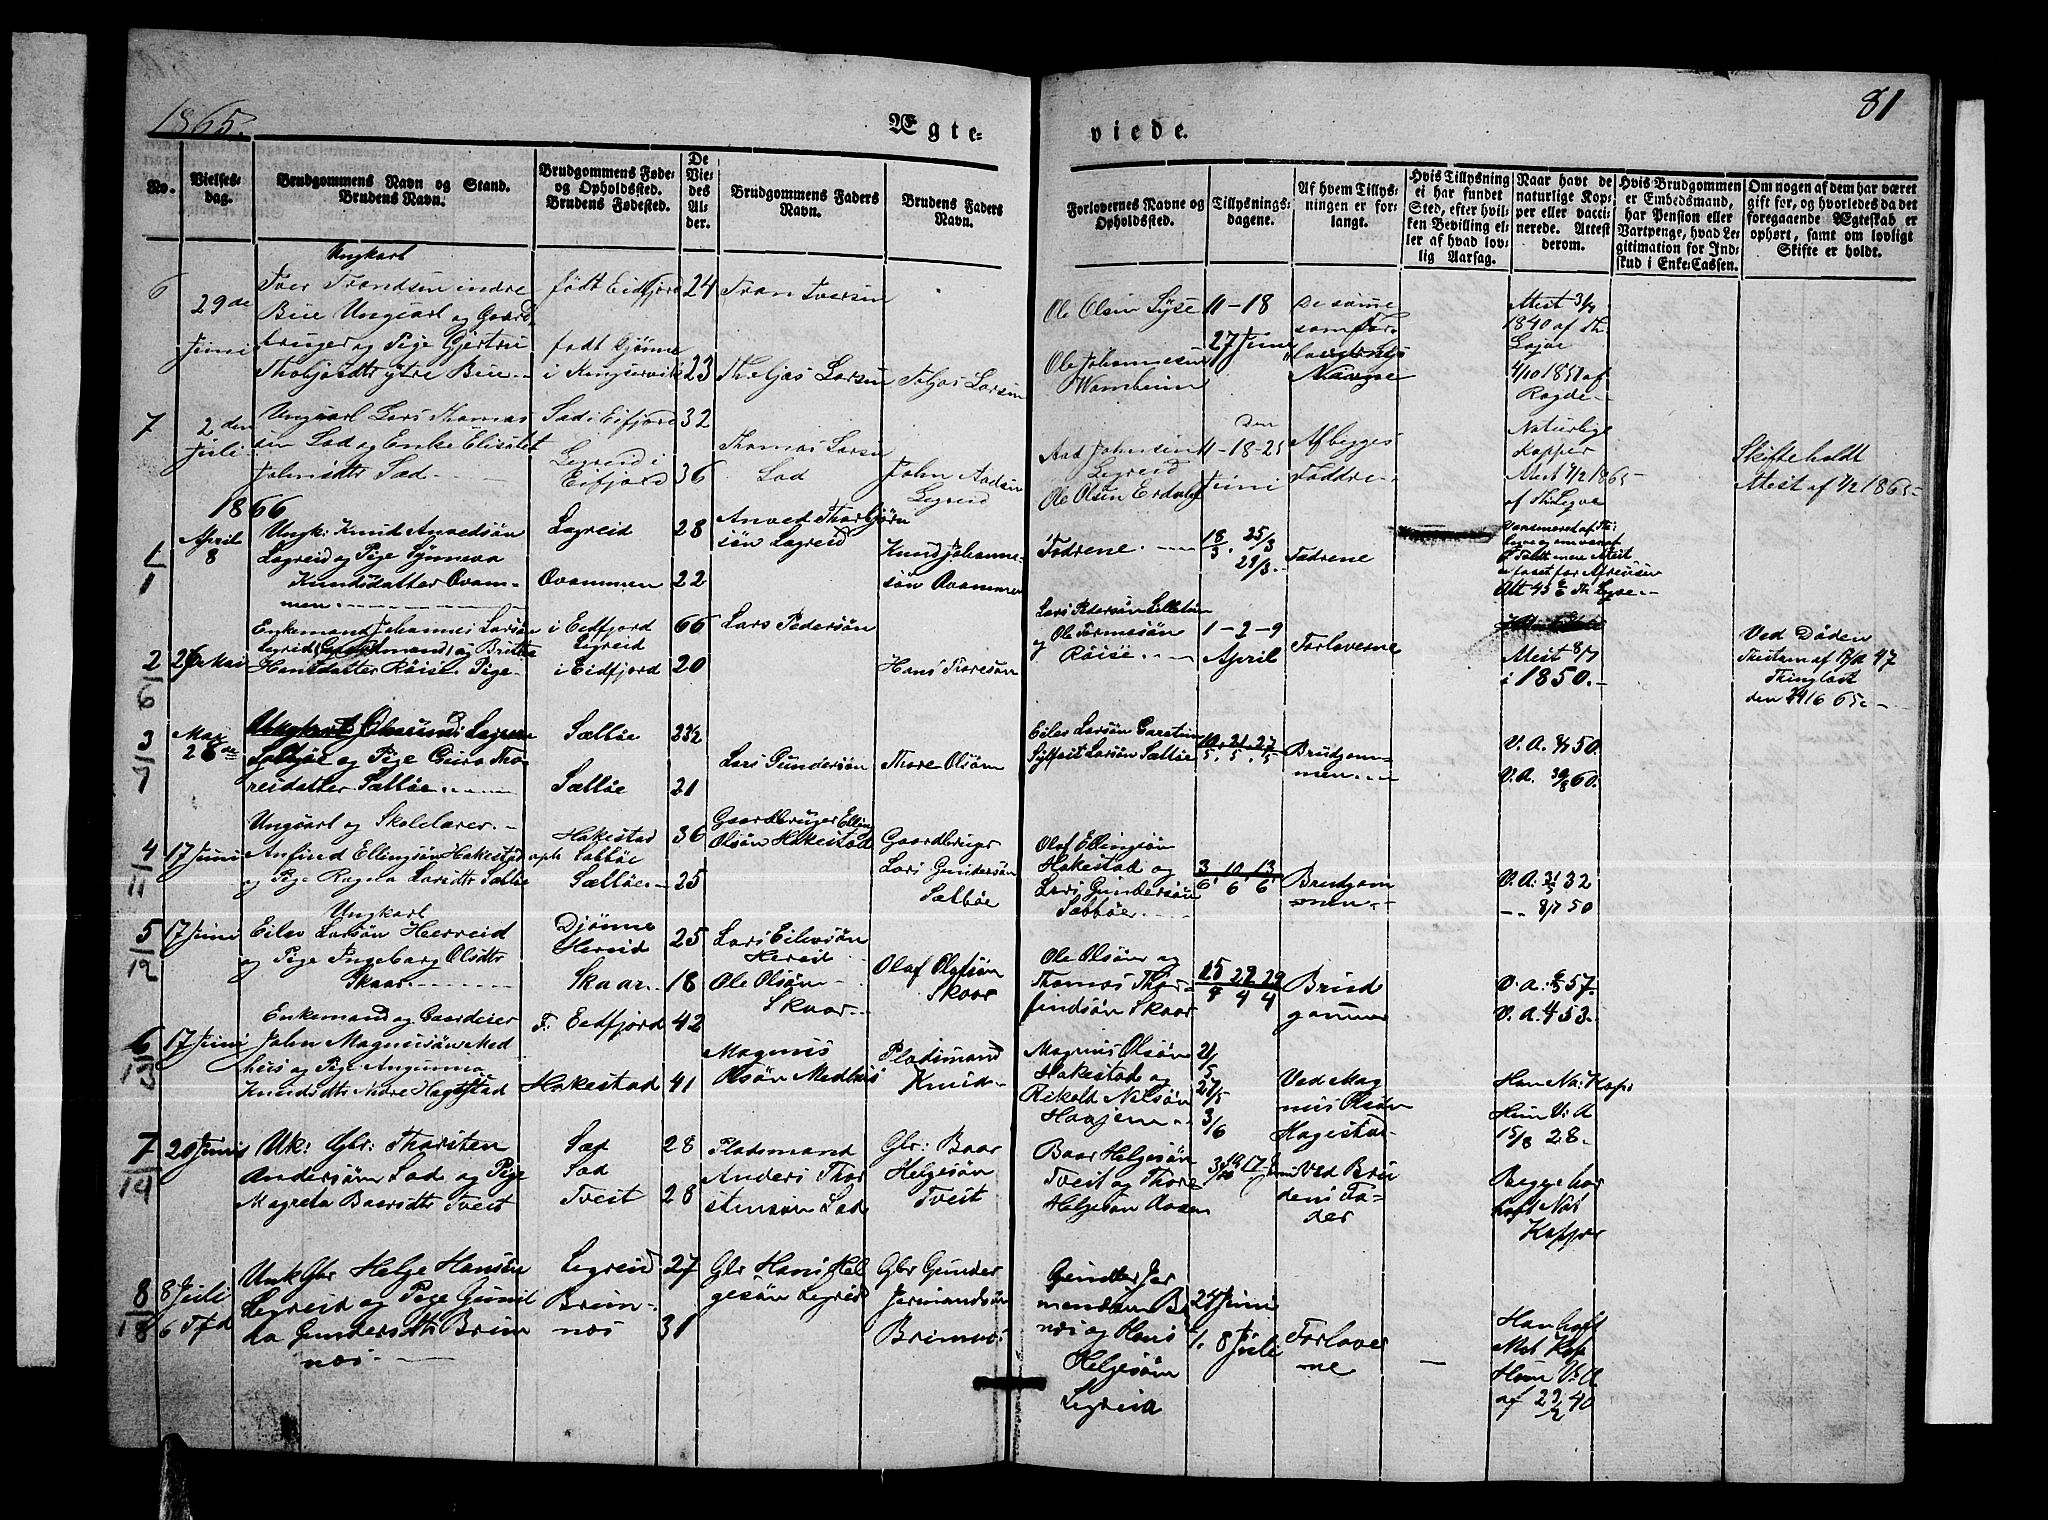 1865.
81
Ægte=
viede.
No.
Vielses=
dag.
Brudgommens Navn og Stand.
Brudens Navn.
Brudgommens Føde=
og Opholdssted.
Brudens Fødested.
De
Vie=
des
Al=
der.
Brudgommens Faders
Navn.
Brudens Faders
Navn.
Forlovernes Navne og
Opholdssted.
Tillysnings=
dagene.
Af hvem Tillys=
ningen er for=
langt.
Hvis Tillysning
ei har fundet
Sted, efter hvil=
ken Bevilling el=
ler af hvad lov=
lig Aarsag.
Naar havt de
naturlige Kop=
per eller vacci=
nerede. Attest
derom.
Hvis Brudgommen
er Embedsmand,
har Pension eller
Vartpenge, hvad Le=
gitimation for Ind=
skud i Enke=Cassen.
Om nogen af dem har været
gift før, og hvorledes da det
foregaaende Ægteskab er
ophørt, samt om lovligt
Skifte er holdt.
6
29de
Juni
Ungkarl
Iver Trondsen indre
Bue Ungcarl og Gaard
bruger og Pige Gjertru
ytre Bue
født Eidfjord
født Gjønne
i Kingservik
24
23
Tron Iversen
Larsen
Larsen
Ole Olsen Syse
Ole Johannesen
11-18
27 Juni
De samme
som For
lovernes
Navne
Attest 3/7
1840 af Th.
4/10 1851 af
7
2den
Juli
Ungcarl Lars Thomas
sen Sæd og Enke Elisabet
Johnsdtr Sæd
Sæd i Eifjord
Legreid i
Eifjord
32
36
Thomas Larsen
Sæd
John Aadsen
Legreid
Aad Johnsen
Legreid
Ole Olsen Erdal
den
11-18-25
Juni
Af begges
Fæddre
Naturlige
Kopper
Attest 7/2 1865
af Th: Legve
Skifte holdt
Attest af 7/2 1865
1866
1/1
April
8
Ungk: Knud Anvedsøn
Lægreid og Pige Synneva
Knudsdatter Qvam=
men.
Lægreid
Qvammen
28
22
Anved Thorbjørn
søn Lægreid
Knud Johanne=
søn Qvammen
Fædrene.
18/3. 25/3
29/3.
Fædrene
2/6
26 Mai
Enkemand Johannes Larsøn
Legreid (Gaardmand) og Britta
Hansdatter Røise Pige
i Eidfjord
Legreid
i Eidfjord
66
20
Lars Pedersøn
Hans Thoresøn
Lars Pedersøn
og Ole
Røise
1-2-9
April
Forloverne
Attest 8/7
i 1850.
Ved Døden
af 47
Thinglæst
den 65
3/7
Mai
28de
Sæbøe og Pige Guro Tho
resdatter Sæbøe
Sæbøe
Sæbøe
23 1/2
21
Lars Gundersøn
Thore Olsøn
Eilev Larsøn
Larsøn Sæbøe
10/5, 21/5, 27/5
Brudgom=
men
V. A. 8/7 50.
V. A. 30/8 60.
4/11
17 Juni
Ungcarl og Skolelærer
Anfind Ellingsøn Hakestad
og Pige Ragna Larsdtr Sæbøe
Hakestad
Sæbøe
Sæbøe
36
25
Gaardbruger Elling
Olsøn Hakestad
Gaardbruger
Lars Gundersøn
Sæbøe
Olaf Ellingsøn
Hakestad og
Lars Gundersøn
Sæbøe
3/6, 10/6, 13/6
Brudgom
men
V. A: 31/5 32
8/7 50
5/12
17 Juni
Ungkarl
Eilev Larsøn Herreid
og Pige Ingeborg Olsdtr
Skaar
Djønne
Hereid
Skaar
25
18
Lars Eilevsøn
Hereid
Ole Olsøn
Skaar
Olaf Olafsøn
Skaar
Ole Olsøn og
Thomas Thor=
findsøn Skaar
15/4 22/4 29/4
Brud
gommen
V. A: 57.
V. A. 53.
6/13
17 Juni
Enkemand og Gaardeier
John Magnusøn Med
huus og Pige
Knudsdtr Nedre Hagestad
F: Eedfjord
Hakestad
42
41
Magnus
Olsøn Medhus
Pladsmand
Knud
Magnus Olsøn
Hakestad og
Rikold Nilsøn
21/5
27/5
3/6
Ved Mag
nus Olsøn
Hagestad
Han Na: Kopr
Hun V: A
15/8 28.
7/14
20 Juni
Uk: Gbr: Thorsten
Andersøn Sæd og Pige
Magreta Baarsdtr Tveit
Sæd
Sæd
Tveit
28
28
Pladsmand
Anders Thor
stensøn Sæd
Gbr: Baar
Helgesøn
Tveit
Baar Helgesøn
Tveit og Thore
Helgesøn
Ved Bru
dens Fa=
der
Begge har
haft Nat
Kopper
8/18
8 Juli
6 Tfd
Unk Gbr Helge Hansøn
Legreid og Pige Gunil
da Gundersdtr Brim
næs
Legreid
Brim=
næs
27
31
Gbr Hans Hel
gesøn Legreid
Gbr Gunder
Jermandsøn
Brimnæs
Gunder Jer
mandsøn Br
næs og Hans
Helgesøn
Legreid
24 Juni
1. 8 Juli
Forlover
ne
Han haft
Nat Kop
Hun V. A
af 29/2 40